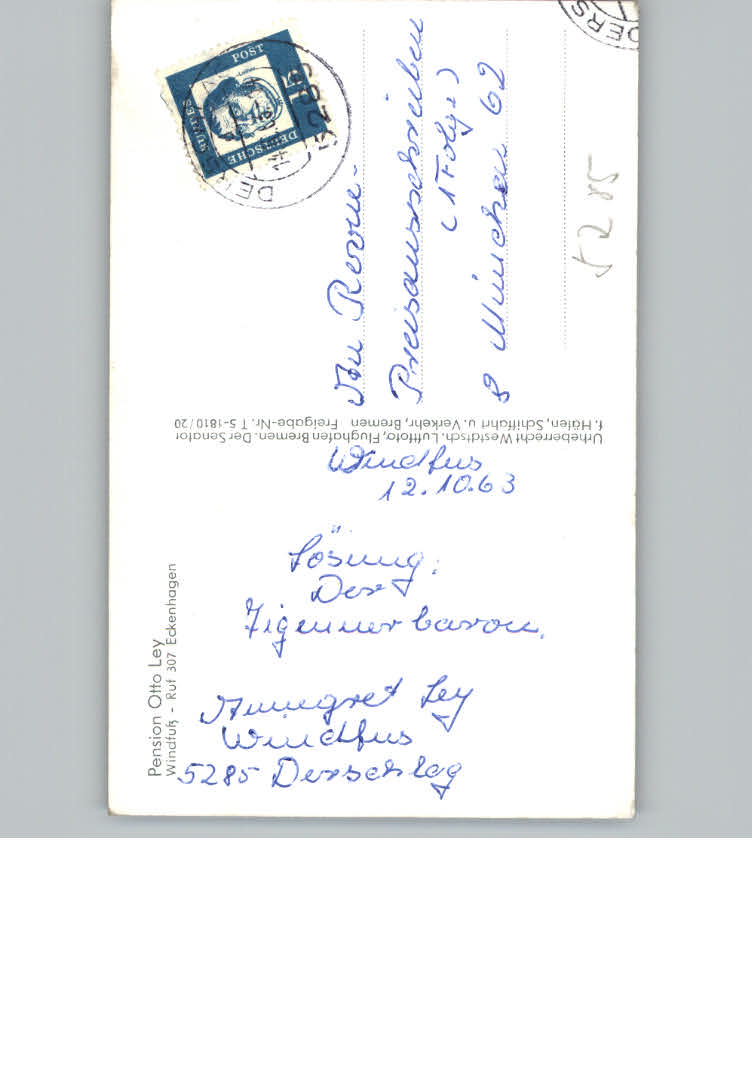 Pension Otto Ley
Windfuß - Ruf 307 Eckenhagen
Windfus
12.10.63
Lösung:
Der
Zigeunerbaron.
Annegret Ley
Windfus
5285 Derschlag
Urheberrecht Westdtsch. Luftfoto, Flughafen Bremen. Der Senator
f. Häfen, Schiffahrt u. Verkehr, Bremen Freigabe-Nr. T 5-1810/20
An Revue-
Preisausschreiben
(1 Folge)
8 München 62
5285
DEUTSCHE
BUNDES
POST
15
Luther
5285
DERS